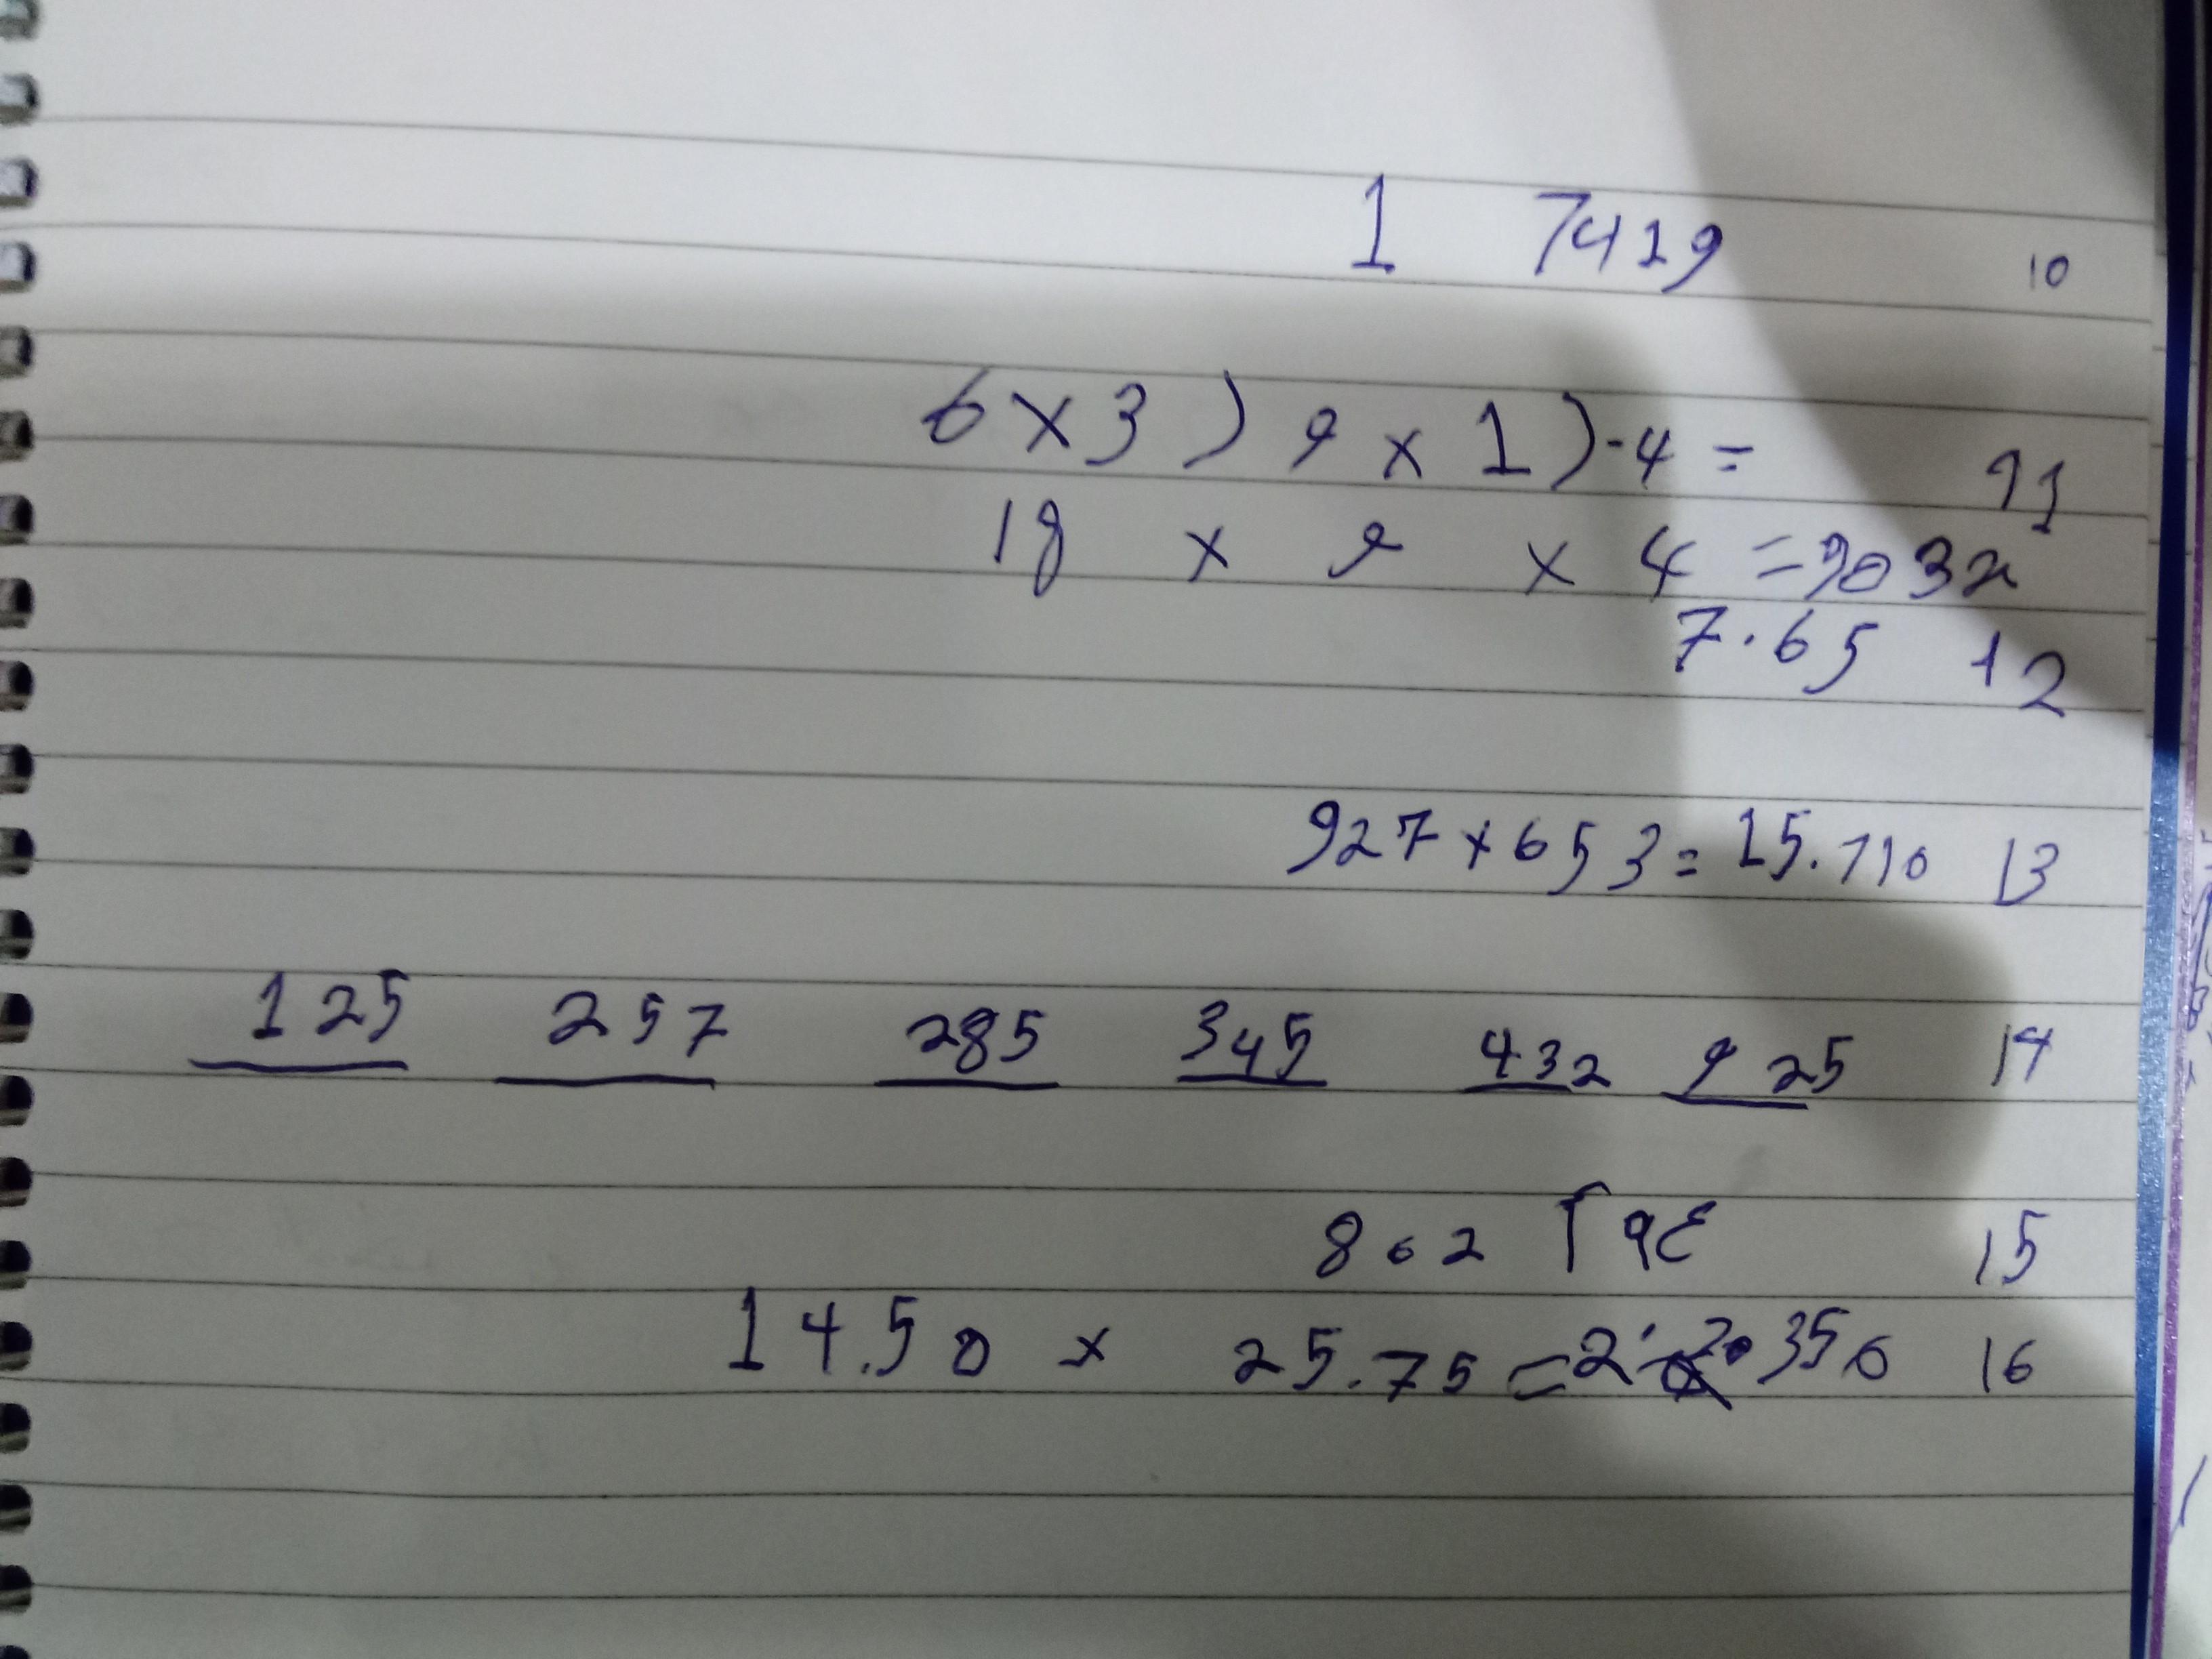 1 7429 10
6 × 3 ) 9 × 1 ) - 4 = 11
18 × 9 × 4 = 9032
7.65 12
927 × 653 = 15.110 13
125 257 285 345 432 925 14
802 15
14.50 × 25.75 = 350 16